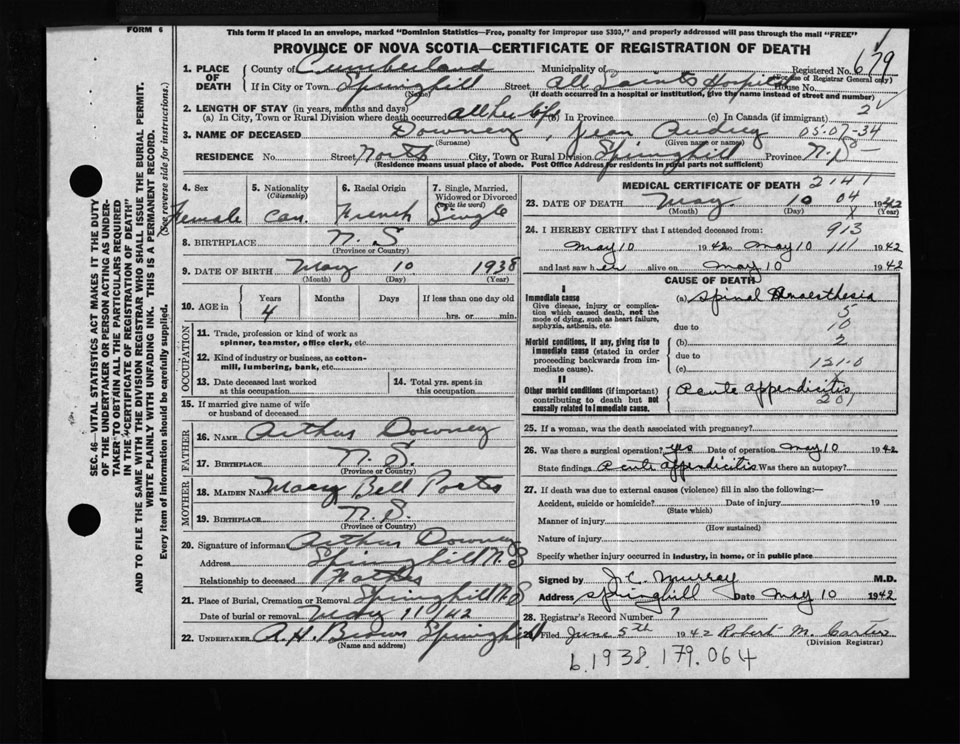 FORM 6
This form if placed in an envelope, marked "Dominion Statistics—Free, penalty for improper use $300," and properly addressed will pass through the mail "FREE"
PROVINCE OF NOVA SCOTIA—CERTIFICATE OF REGISTRATION OF DEATH
679
1. PLACE OF DEATH County of Cumberland Municipality of Registered No.
(For use of Registrar General only)
If in City or Town Springhill Street All Saints Hospital House No.
(Name) (If death occurred in a hospital or institution, give the name instead of street and number)
2. LENGTH OF STAY (in years, months and days)
(a) In City, Town or Rural Division where death occurred all her life (b) In Province (c) In Canada (if immigrant) 2
3. NAME OF DECEASED Downey, Jean Audrey 05-07-34
(Surname) (Given name or names)
RESIDENCE No. Street North City, Town or Rural Division Springhill Province N.S.
(Residence means usual place of abode. Post Office Address for residents in rural parts not sufficient)
4. Sex
Female
5. Nationality (Citizenship)
Can.
6. Racial Origin
French
7. Single, Married, Widowed or Divorced (write the word)
Single
8. BIRTHPLACE N.S
(Province or Country)
9. DATE OF BIRTH May 10 1938
(Month) (Day) (Year)
10. AGE in Years Months Days If less than one day old
4 hrs. or min.
OCCUPATION
11. Trade, profession or kind of work as spinner, teamster, office clerk, etc.
12. Kind of industry or business, as cotton-mill, lumbering, bank, etc.
13. Date deceased last worked at this occupation
14. Total yrs. spent in this occupation
15. If married give name of wife or husband of deceased
FATHER
16. NAME Arthur Downey
17. BIRTHPLACE N.S.
(Province or Country)
MOTHER
18. MAIDEN NAME Macy Bell
19. BIRTHPLACE N.S.
(Province or Country)
20. Signature of informant Arthur Downey
Address Springhill N.S
Relationship to deceased Father
21. Place of Burial, Cremation or Removal Springhill N.S
Date of burial or removal May 11/42
22. UNDERTAKER A.H. Brown Springhill
(Name and address)
MEDICAL CERTIFICATE OF DEATH 2141
23. DATE OF DEATH May 10 04 1942
(Month) (Day) (Year)
24. I HEREBY CERTIFY that I attended deceased from: 913
May 10 1942 to May 10 111 1942
and last saw her alive on May 10 1942
CAUSE OF DEATH
I
Immediate cause
Give disease, injury or complication which caused death, not the mode of dying, such as heart failure, asphyxia, asthenia, etc.
(a) Spinal Anaesthesia
5
due to 10
Morbid conditions, if any, giving rise to immediate cause (stated in order proceeding backwards from immediate cause).
(b) 2
due to
(c) 121.0
II
Other morbid conditions (if important) contributing to death but not causally related to immediate cause.
Acute appendicitis
201
25. If a woman, was the death associated with pregnancy?
26. Was there a surgical operation? yes Date of operation May 10 1942
State findings Acute appendicitis Was there an autopsy?
27. If death was due to external causes (violence) fill in also the following:—
Accident, suicide or homicide? Date of injury 19
(State which)
Manner of injury
(How sustained)
Nature of injury
Specify whether injury occurred in industry, in home, or in public place
Signed by J.C. Murray M.D.
Address Springhill Date May 10 1942
28. Registrar's Record Number 7
Filed June 5th 1942 Robert M. Carter
(Division Registrar)
b.1938.179.064
SEC. 46—VITAL STATISTICS ACT MAKES IT THE DUTY
OF THE UNDERTAKER OR PERSON ACTING AS UNDER-
TAKER TO OBTAIN ALL THE PARTICULARS REQUIRED
IN THE "CERTIFICATE OF REGISTRATION OF DEATH"
AND TO FILE THE SAME WITH THE DIVISION REGISTRAR WHO SHALL ISSUE THE BURIAL PERMIT.
WRITE PLAINLY WITH UNFADING INK. THIS IS A PERMANENT RECORD.
Every item of information should be carefully supplied. (See reverse side for instructions.)